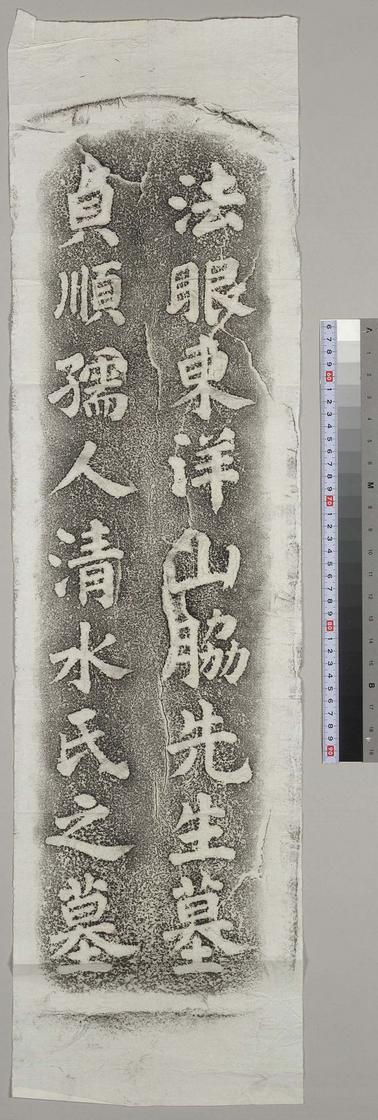 法眼東洋山脇先生墓
貞順孺人清水氏之墓